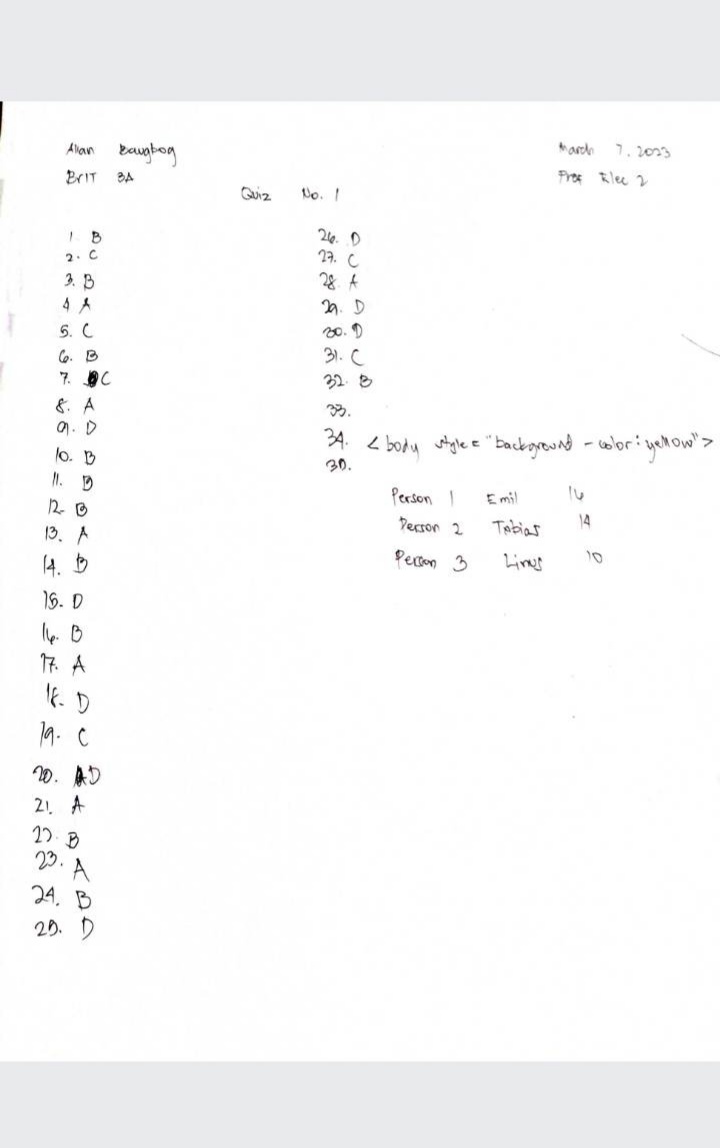 Allan Baugbog
March 7, 2023
BrIT 3A
Prof Elec 2
Quiz No. 1
1. B
2. C
3. B
4 A
5. C
6. B
7. C
8. A
9. D
10. B
11. B
12. B
13. A
14. B
15. D
16. B
17. A
18. D
19. C
20. D
21. A
22. B
23. A
24. B
25. D
26. D
27. C
28. A
29. D
30. D
31. C
32. B
33.
34. <body style="background-color:yellow">
35.
Person 1 Emil 16
Person 2 Tobias 14
Person 3 Linus 10